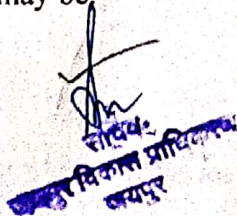 may be
सचिव
जयपुर विकास प्राधिकरण
जयपुर